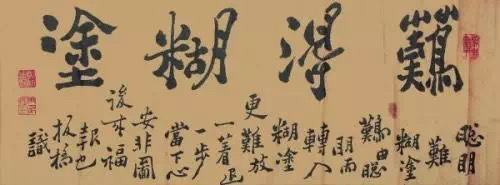 難得糊塗
聰明
難
糊塗
難由聰
明而
轉入
糊塗
更難放
一着退
一步
當下心
安非圖
後来福
報也
板橋
識